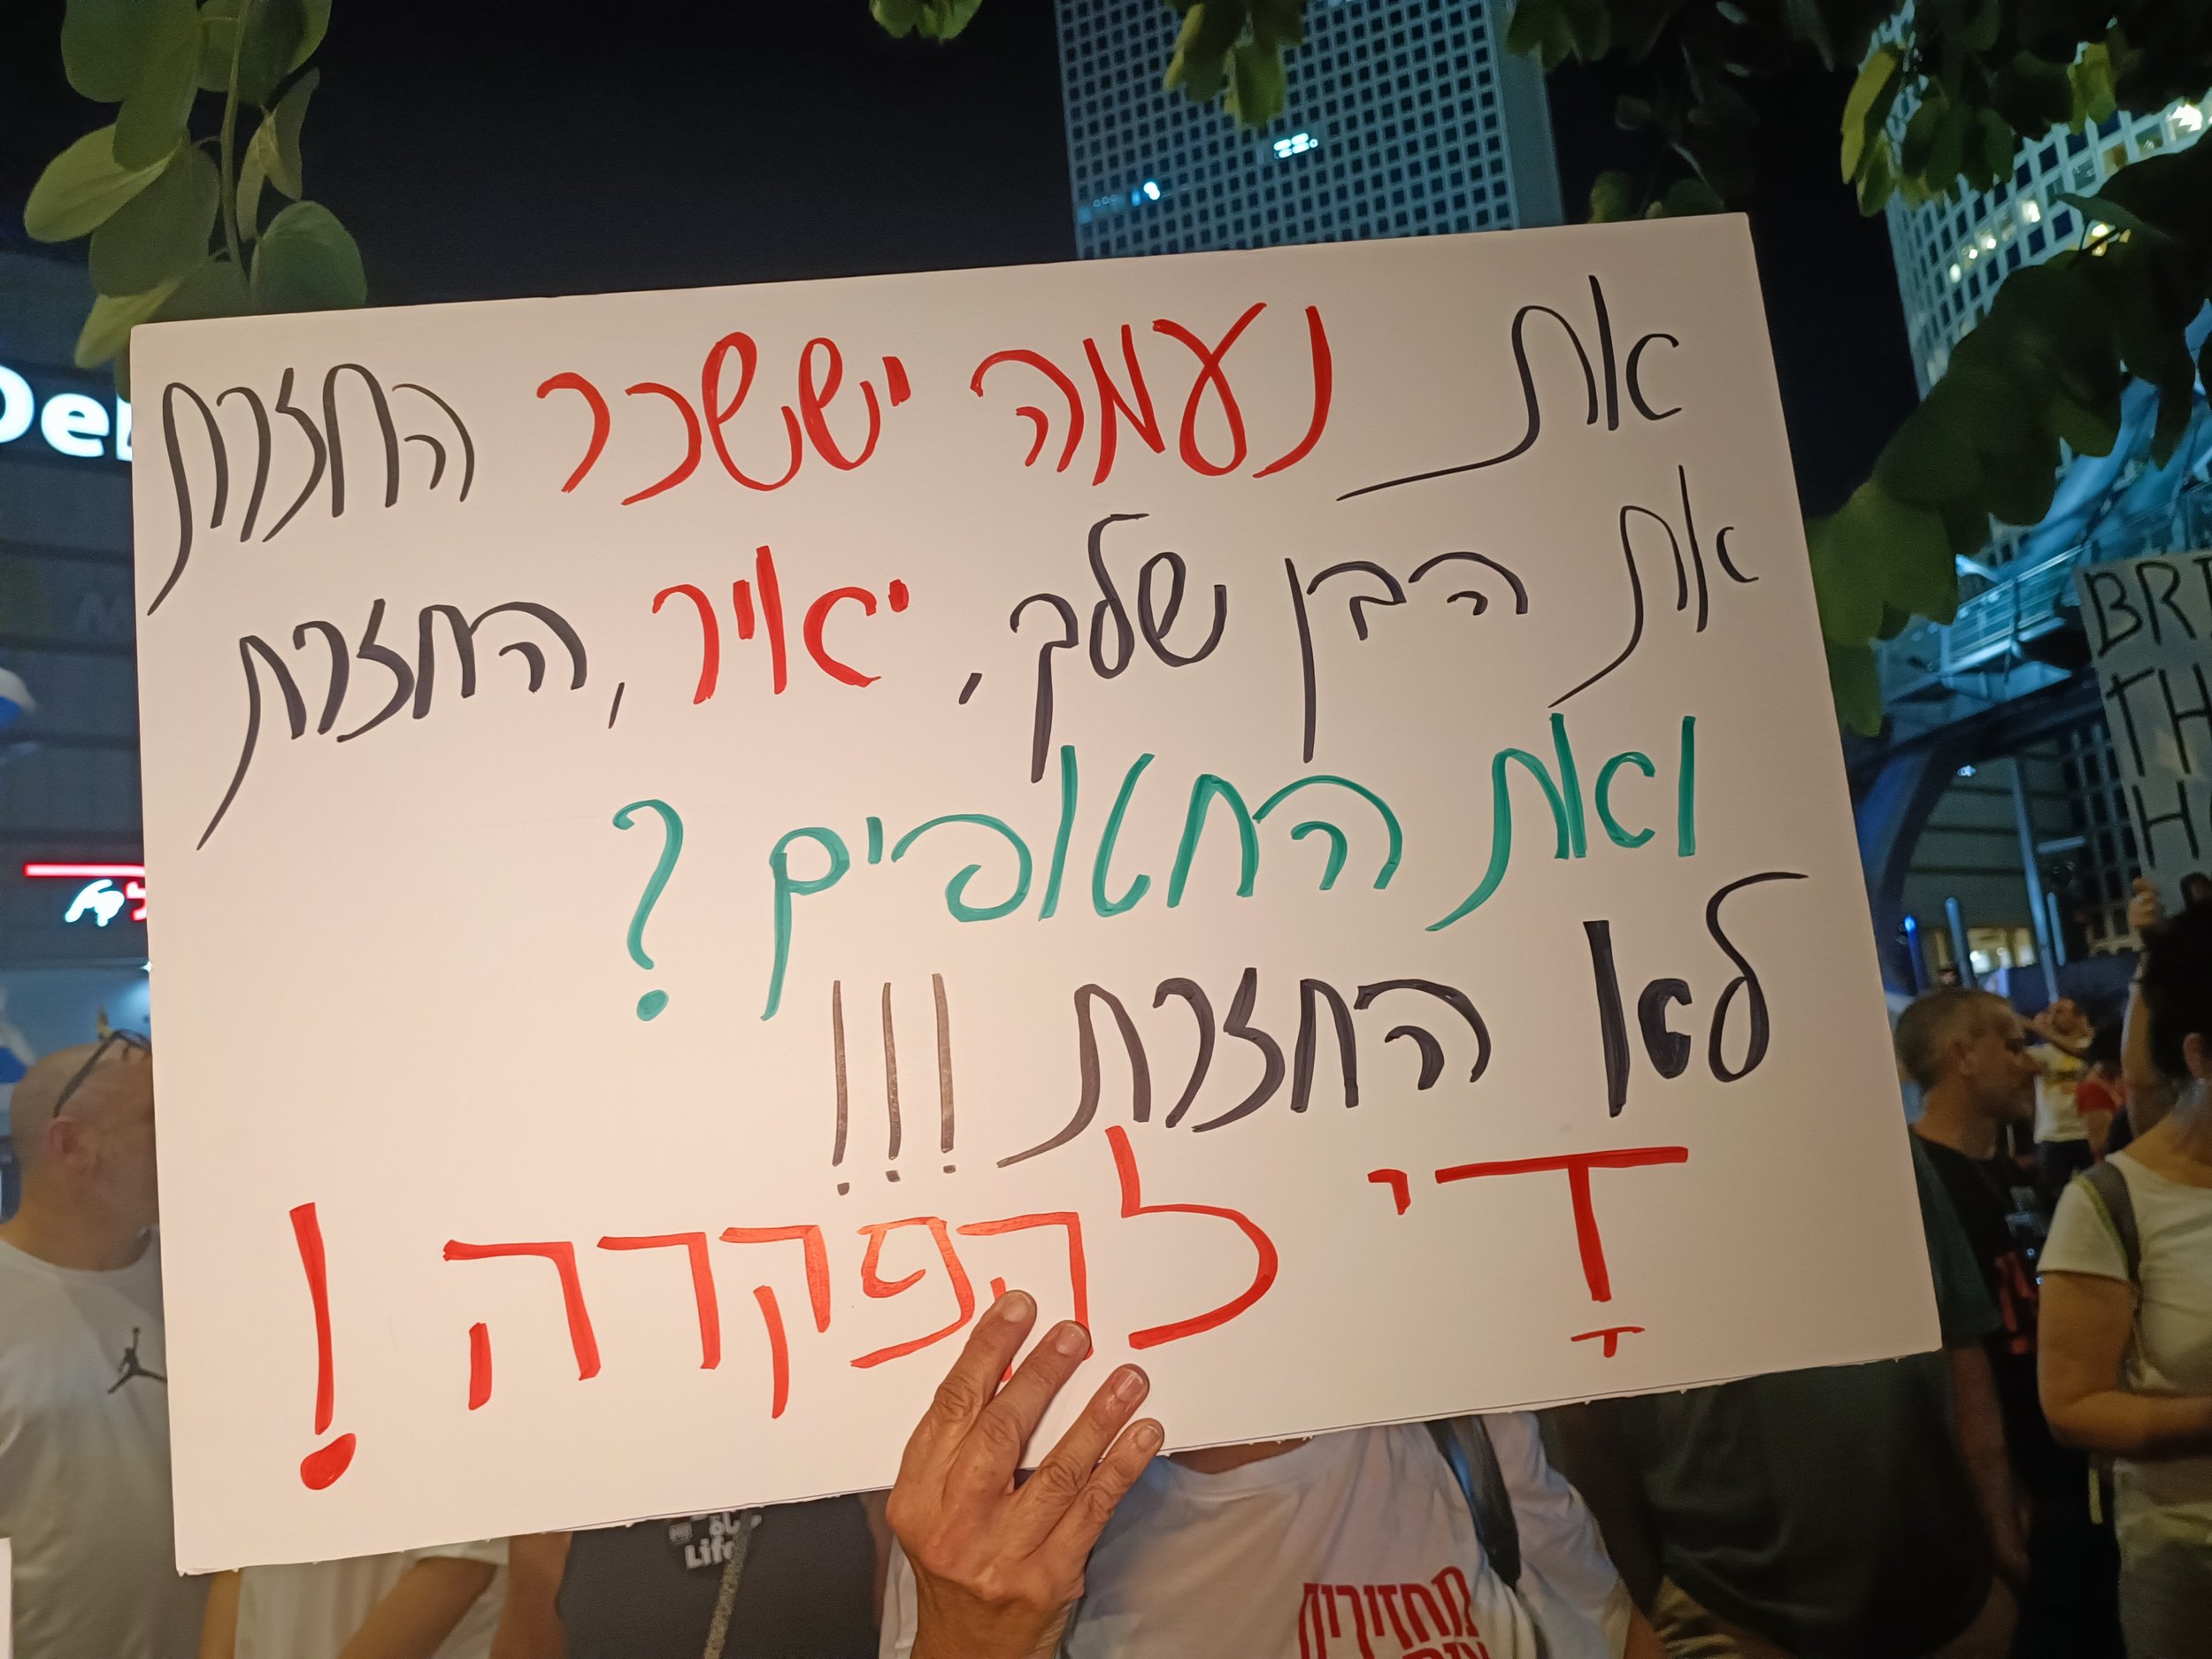 את נעמה יששכר החזרת
את הבן שלך, יאיר, החזרת
ואת החטופים?
לא החזרת !!!
דָי להפקרה!
BRI
TH
H
De
Life
מחזירים